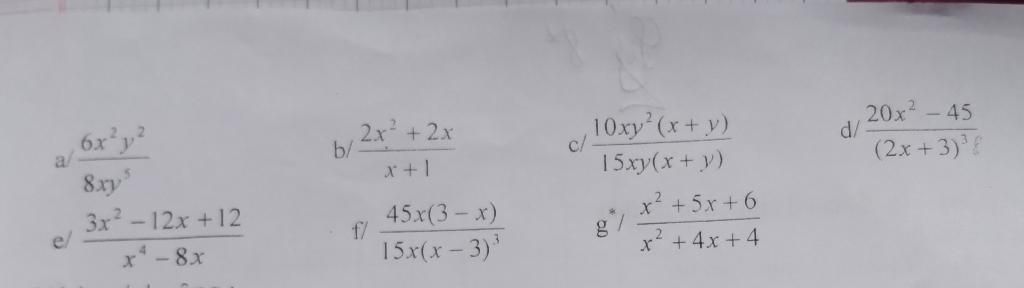 a/ 6x²y²/8xy⁵ b/ (2x² + 2x)/(x + 1) c/ 10xy²(x + y)/15xy(x + y) d/ (20x² − 45)/(2x + 3)³
e/ (3x² − 12x + 12)/(x⁴ − 8x) f/ 45x(3 − x)/15x(x − 3)³ g*/ (x² + 5x + 6)/(x² + 4x + 4)